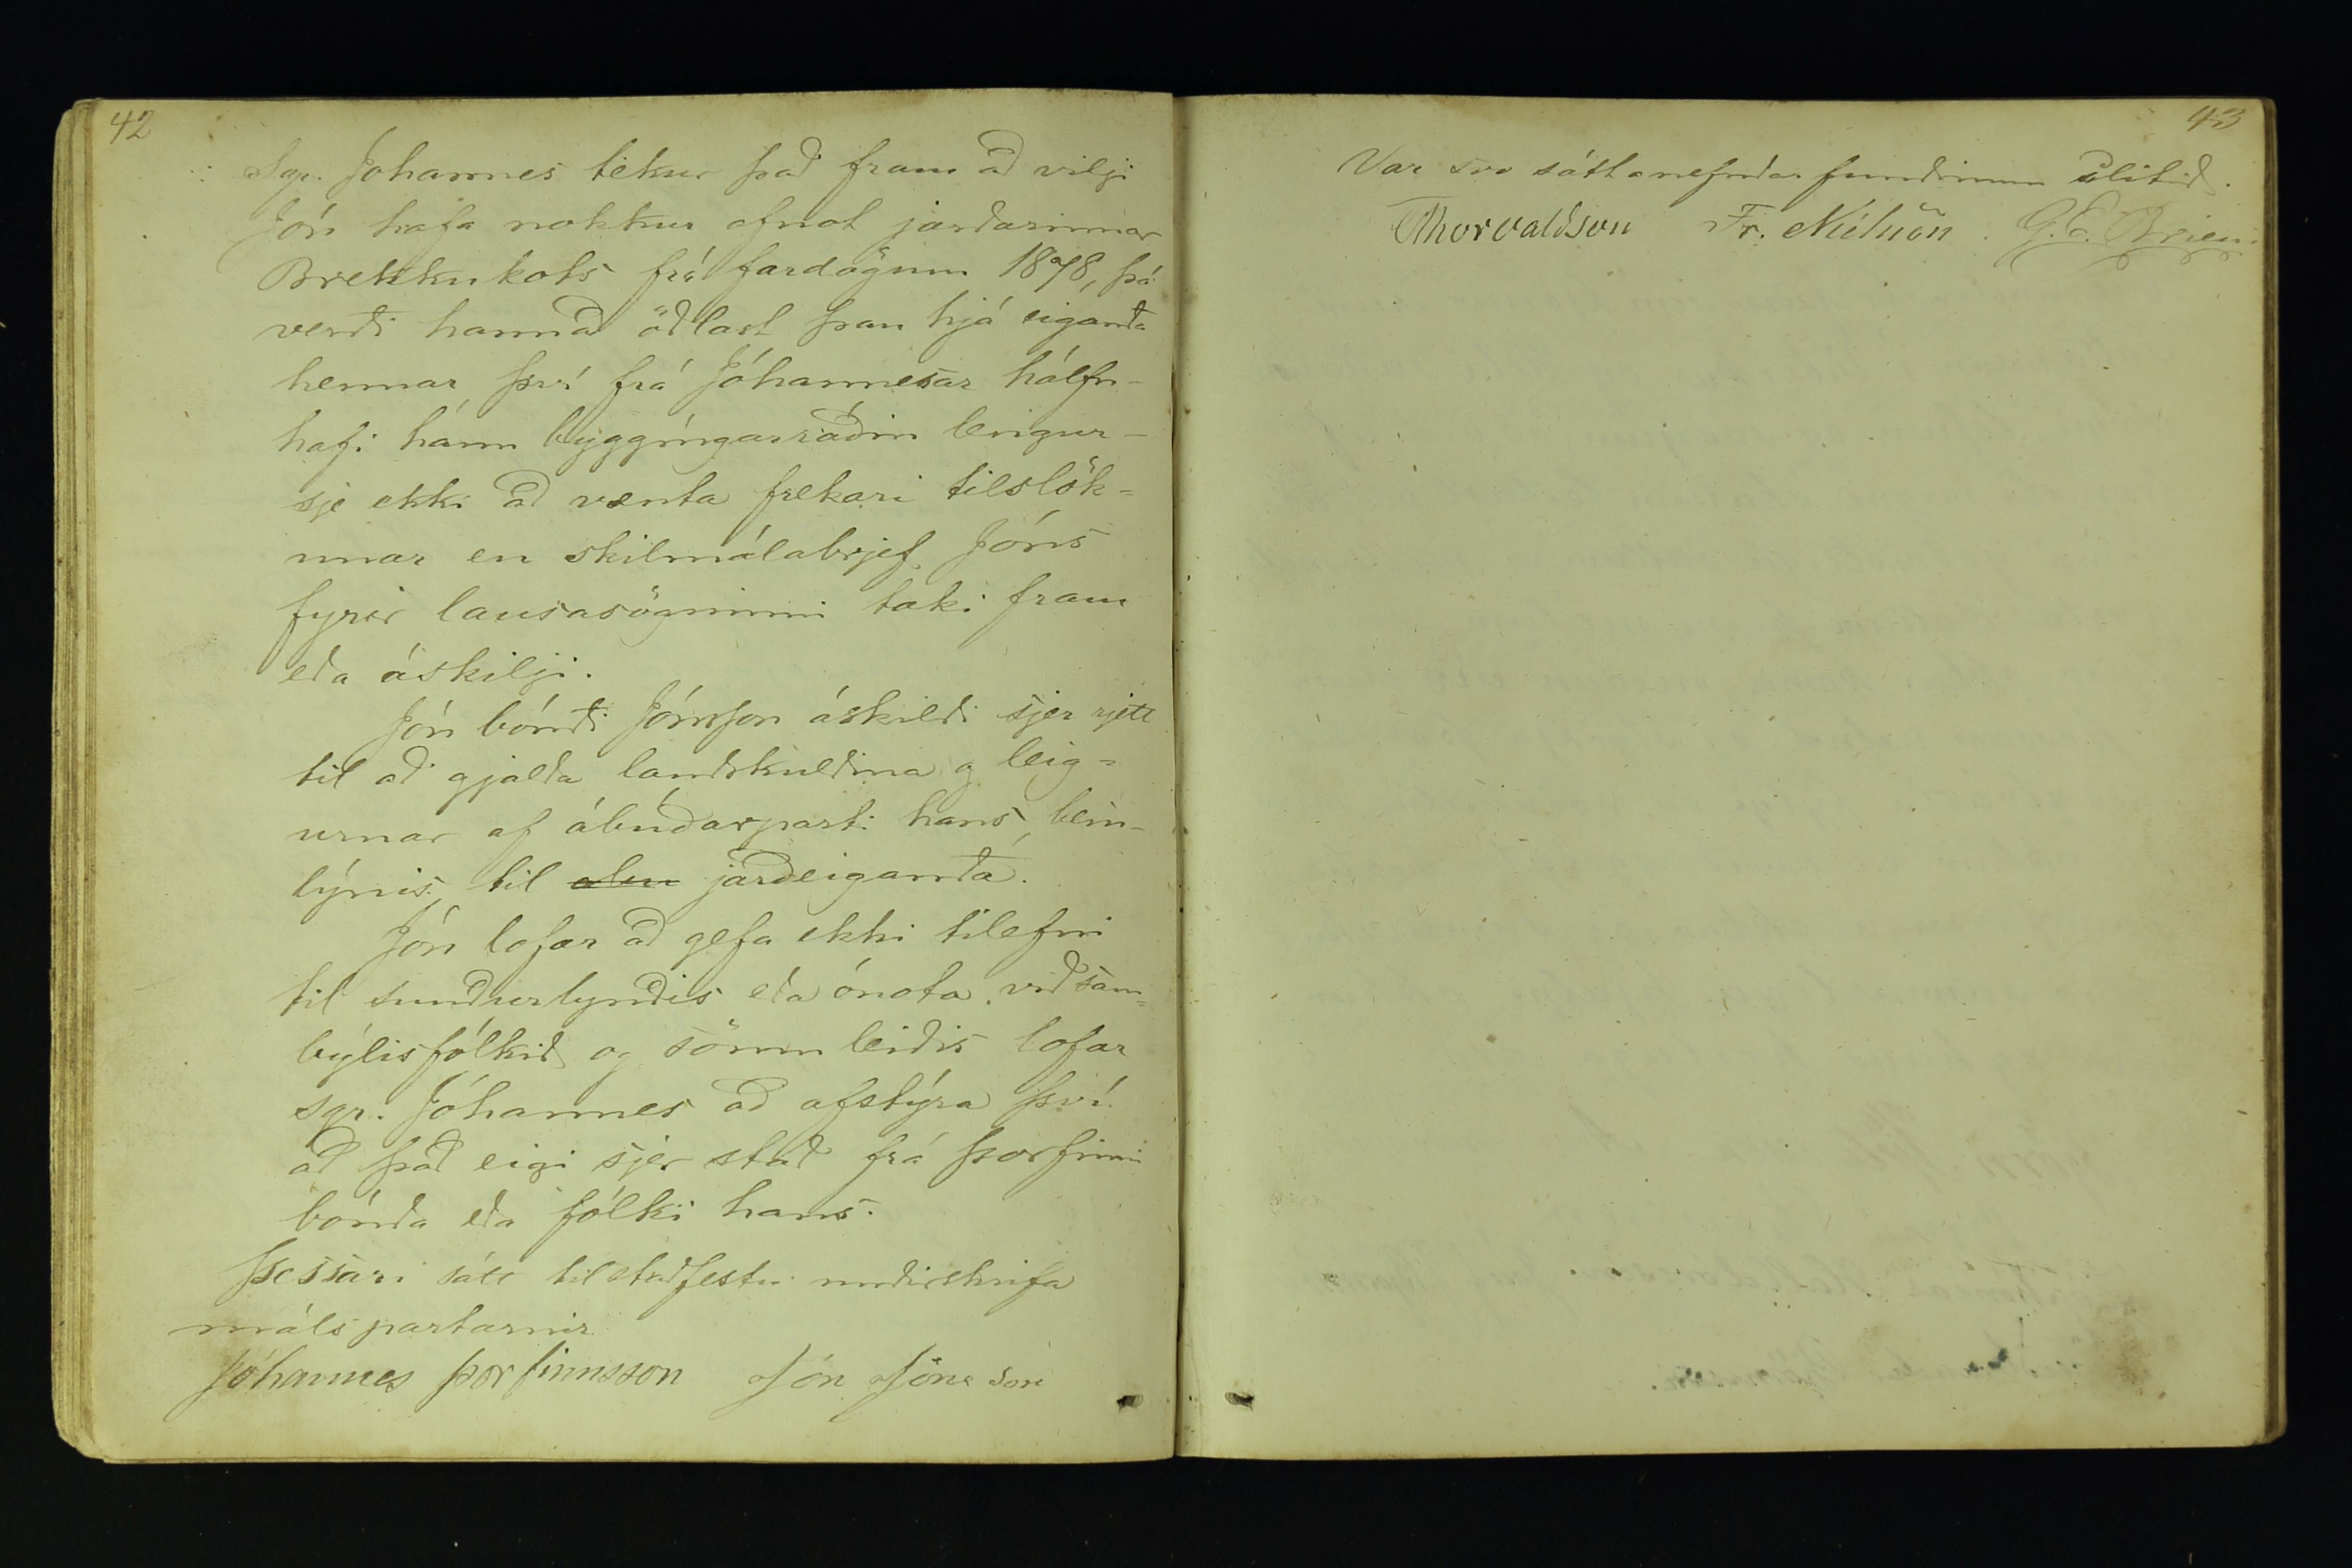 42
Sgr. Jóhannes tekur það fram að vilji
Jón hafa nokkur afnot jarðarinnar
Brekkukots frá fardögum 1878, þá
verði hann að öðlast þau hjá eiganda
hennar, því frá Jóhannesar hálfu
hafi hann byggíngarráðin leingur –
sje ekki að vænta frekari tilslök=
unar en skilmálabrjef Jóns
fyrir lausasögninni taki fram
eða áskilji.
Jón bóndi Jónsson áskildi sjer rjett
til að gjalda landskuldina og leig=
urnar af ábúðarparti hans, bein-
línis, til jarðeiganda.
Jón lofar að gefa ekki tilefni
til sundurlyndis eða ónota við sam=
býlisfólkið og sömuleiðis lofar
sgr. Jóhannes að afstýra því
að það eigi sjer stað frá Þorfinni
bónda eða fólki hans.
Þessari sátt til staðfestu undirskrifa
málspartarnir
Jóhannes Þorfinnsson Jón Jónsson
43
Var svo sáttanefndar fundinum slitið.
Thorvaldson Fr. Níelsson G. E. Briem